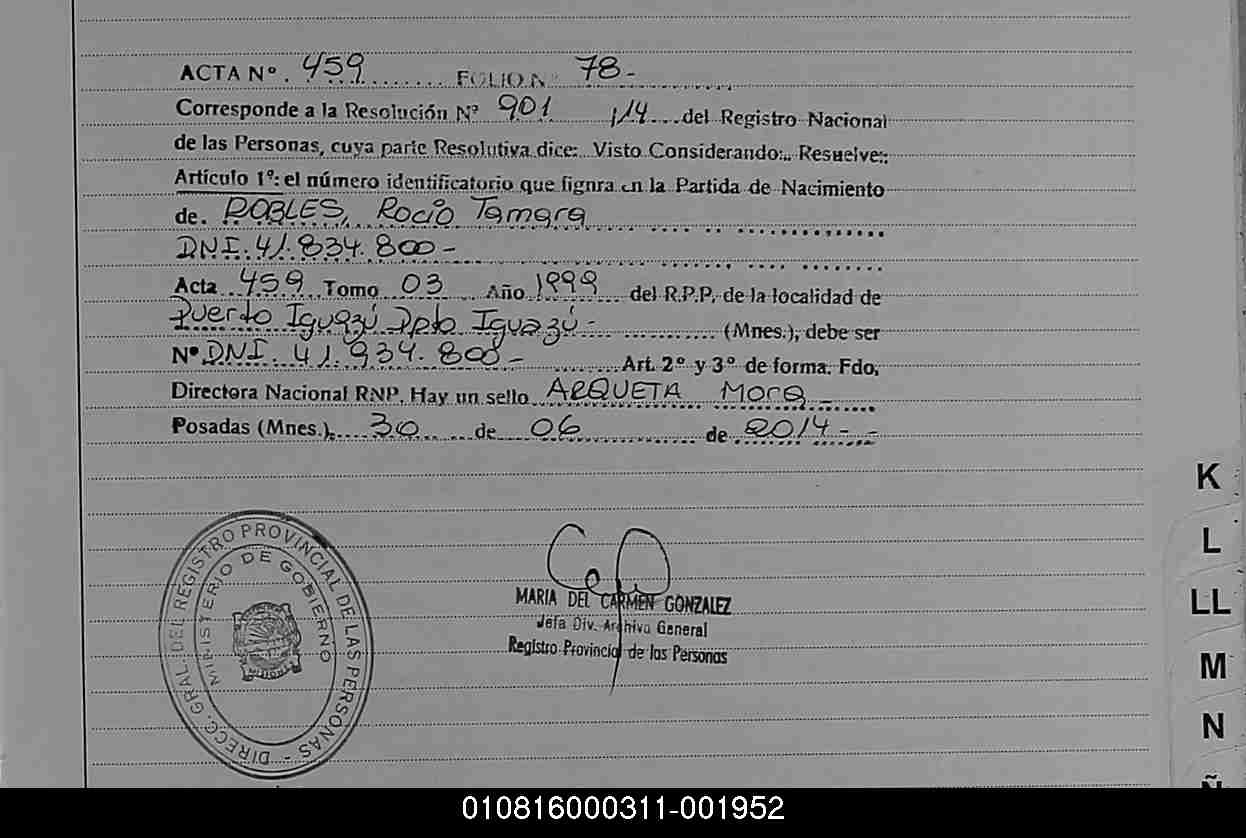 ACTA Nº. 459 FOLIO Nº 78-
Corresponde a la Resolución Nº 901 /14 del Registro Nacional
de las Personas, cuya parte Resolutiva dice: Visto Considerando:.. Resuelve:
Artículo 1º: el número identificatorio que figura en la Partida de Nacimiento
de. ROBLES, Rocio Tamara
DNI. 41.834.800-
Acta 459 Tomo 03 Año 1999 del R.P.P. de la localidad de
Puerto Iguazú Dpto Iguazú- (Mnes.), debe ser
Nº DNI. 41.934.800- Art. 2º y 3º de forma. Fdo.
Directora Nacional RNP. Hay un sello ARQUETA Mora -
Posadas (Mnes.), 30 de 06 de 2014--
DIRECC. GRAL. DEL REGISTRO PROVINCIAL DE LAS PERSONAS -
MINISTERIO DE GOBIERNO
MARIA DEL CARMEN GONZALEZ
Jefa Div. Archivo General
Registro Provincial de las Personas
K
L
LL
M
N
Ñ
010816000311-001952